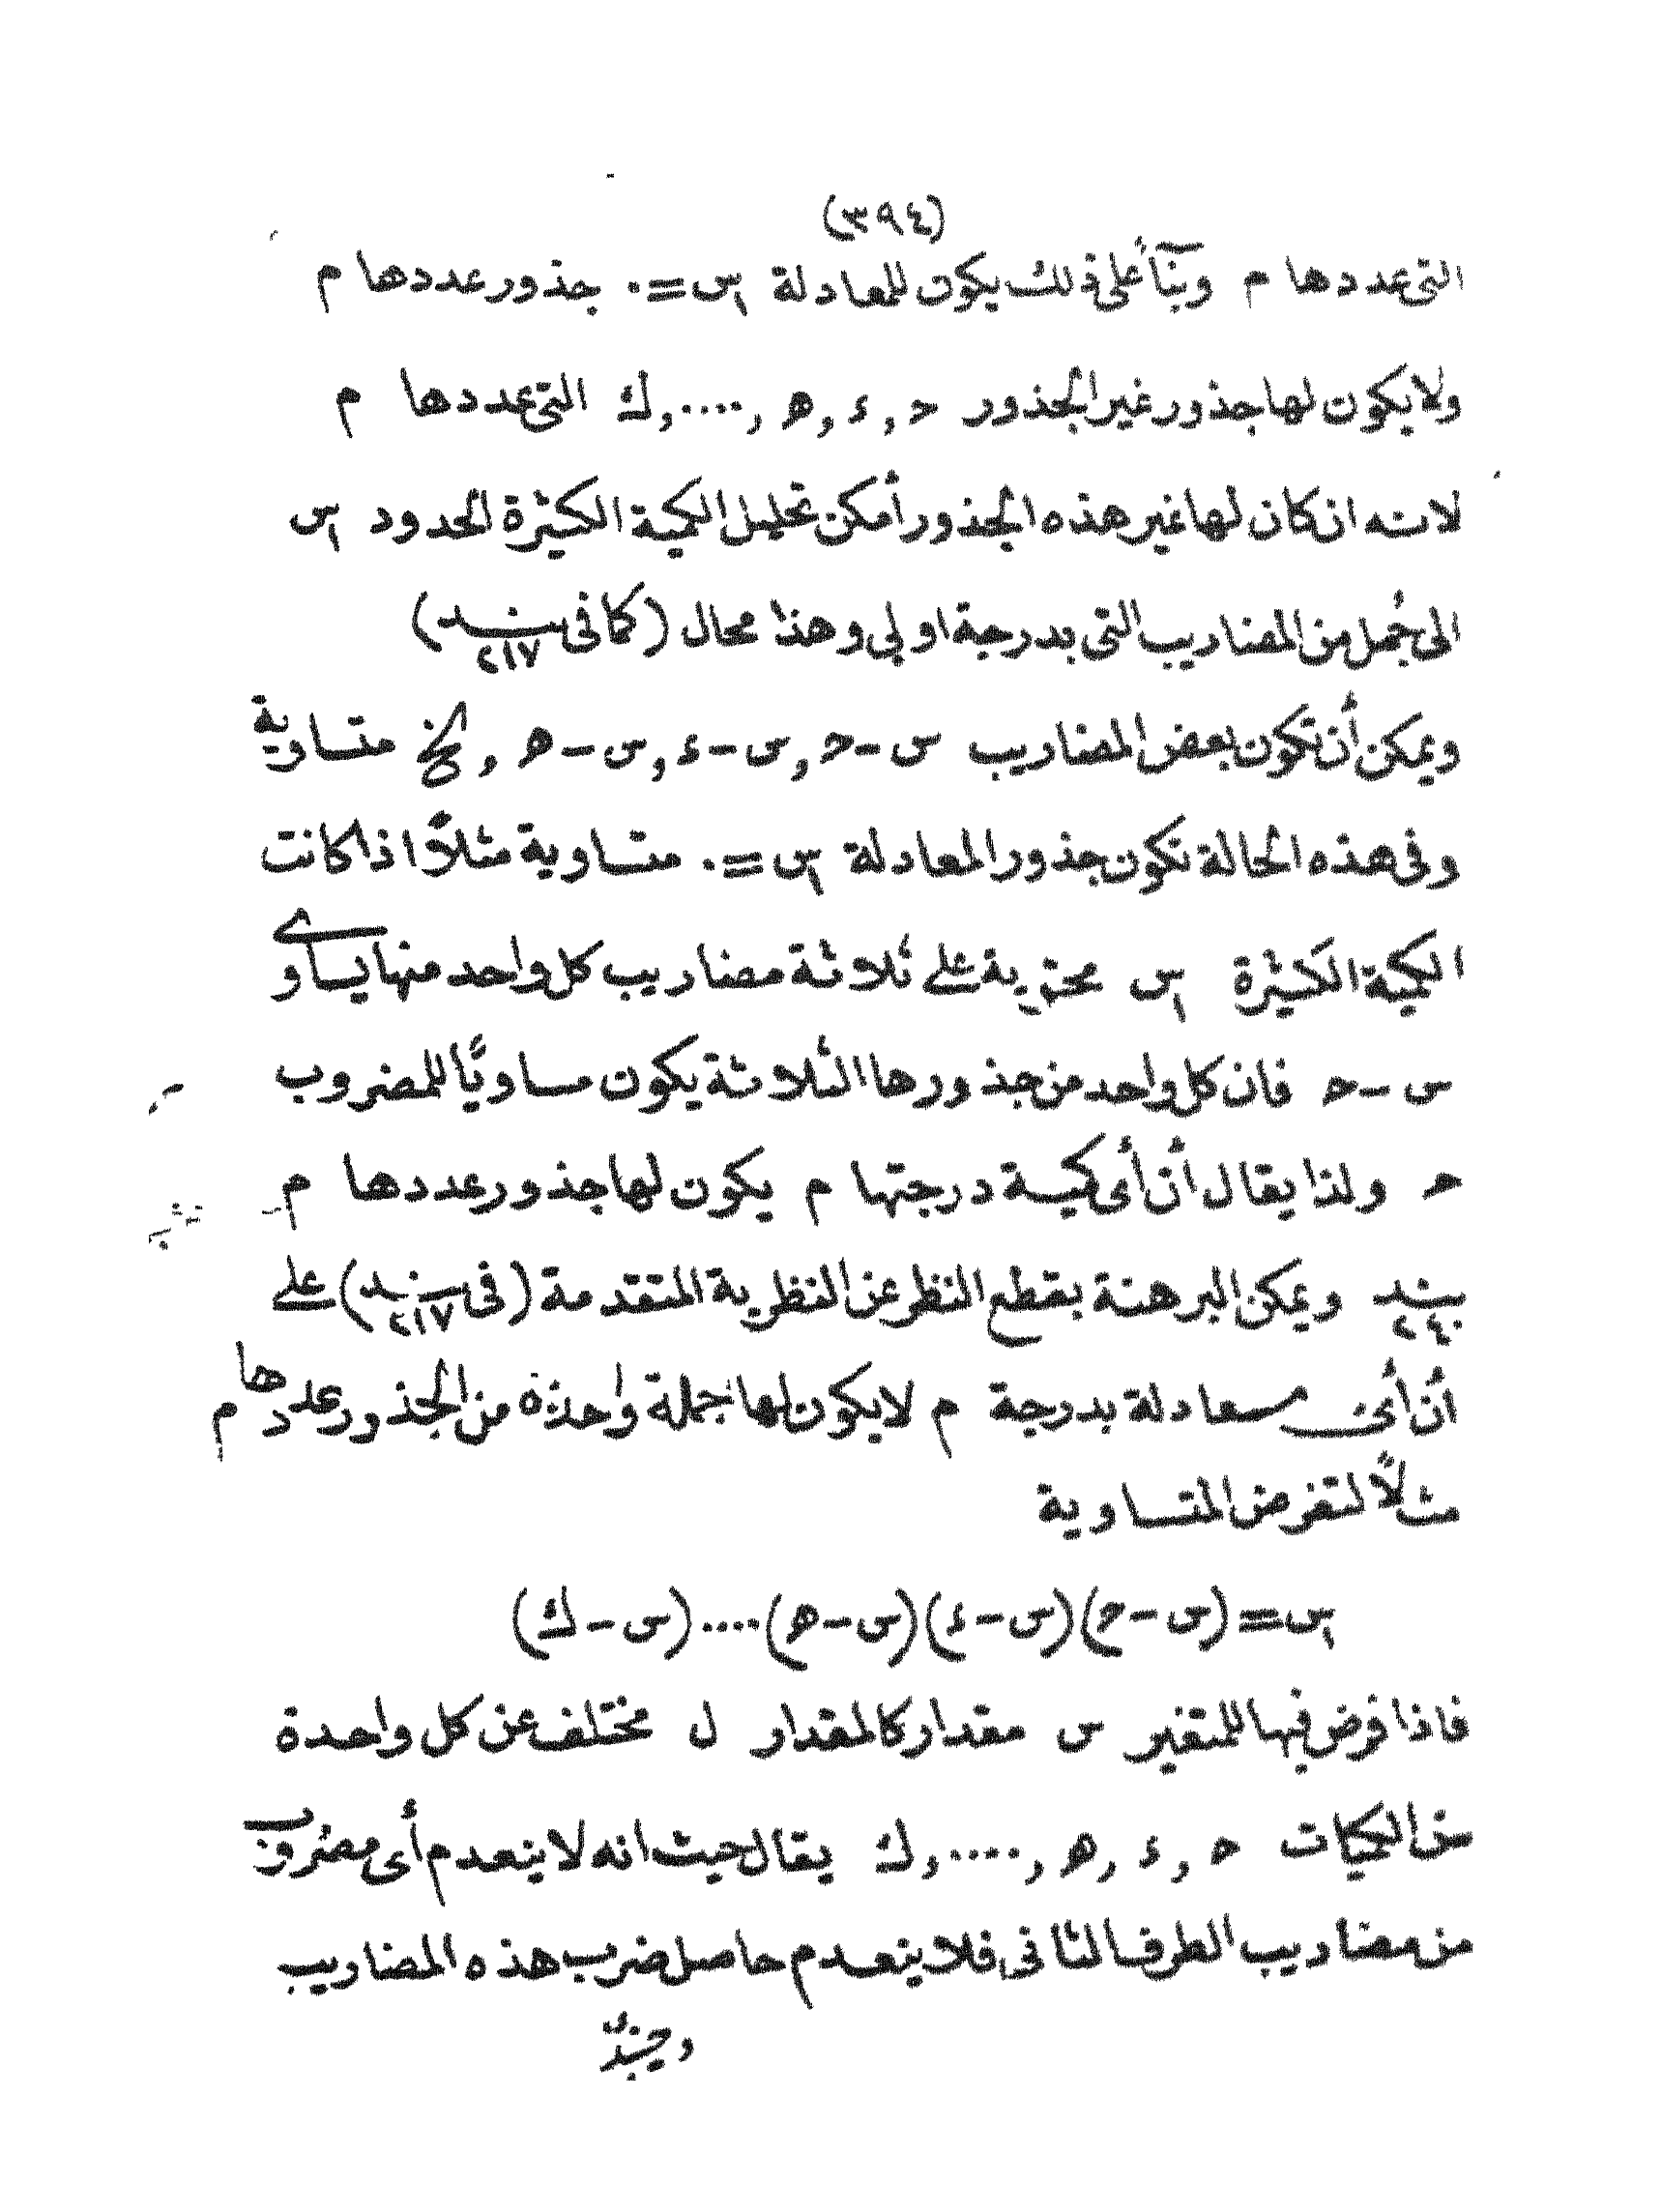 (٣٩٤)
التى عددها م وبنآء على ذلك يكون للمعادلة اس = ٠ جذور عددها م
ولا يكون لها جذور غير الجذور حـ , ء , هـ , .... , ك التى عددها م
لانه ان كان لها غير هذه الجذور أمكن تحليل الكمية الكثيرة الحدود اس
الى جُمل من المضاريب التى بدرجة اولى وهذا محال (كما فى بند ٢١٧)
ويمكن أن تكون بعض المضاريب س - حـ , س - ء , س - هـ , الخ متساوية
وفى هذه الحالة تكون جذور المعادلة اس = ٠ متساوية مثلاً اذا كانت
الكمية الكثيرة اس محتوية على ثلاثة مضاريب كل واحد منها يساوى
س - حـ فان كل واحد من جذورها الثلاثة يكون مساويًا للمضروب
حـ ولذا يقال أن أى كمية درجتها م يكون لها جذور عددها م
بند ٢٤٠ ويمكن البرهنة بقطع النظر عن النظرية المتقدمة (فى بند ٢١٧) على
أن أى معادلة بدرجة م لا يكون لها جملة واحدة من الجذور عددها م
مثلاً لتفرض المتساوية
اس = (س - حـ) (س - ء) (س - هـ) .... (س - ك)
فاذا فرض فيها للمتغير س مقدار كالمقدار ل مختلف عن كل واحدة
من الكميات حـ , ء , هـ , .... , ك يقال حيث انه لا ينعدم أى مضروب
من مضاريب الطرف الثانى فلا ينعدم حاصل ضرب هذه المضاريب
وحينئذ